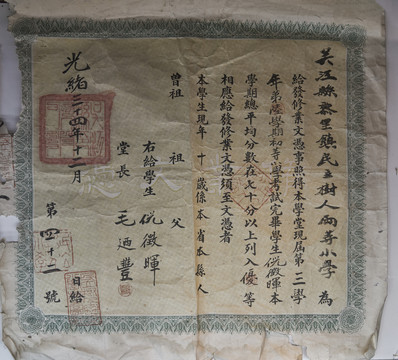 吳江縣黎里鎮民立樹人兩等小學 為
給發修業文憑事照得本學堂現屆第三學
年第陸學期初等學考試完畢學生倪徵暉本
學期總平均分數在七十分以上列入優等
相應給發修業文憑須至文憑者
本學生現年十 歲係本省本縣人
曾祖 祖 父
右給學生倪徵暉
堂長 毛迺豐
光緒三十四年十二月
第四十二號
日給